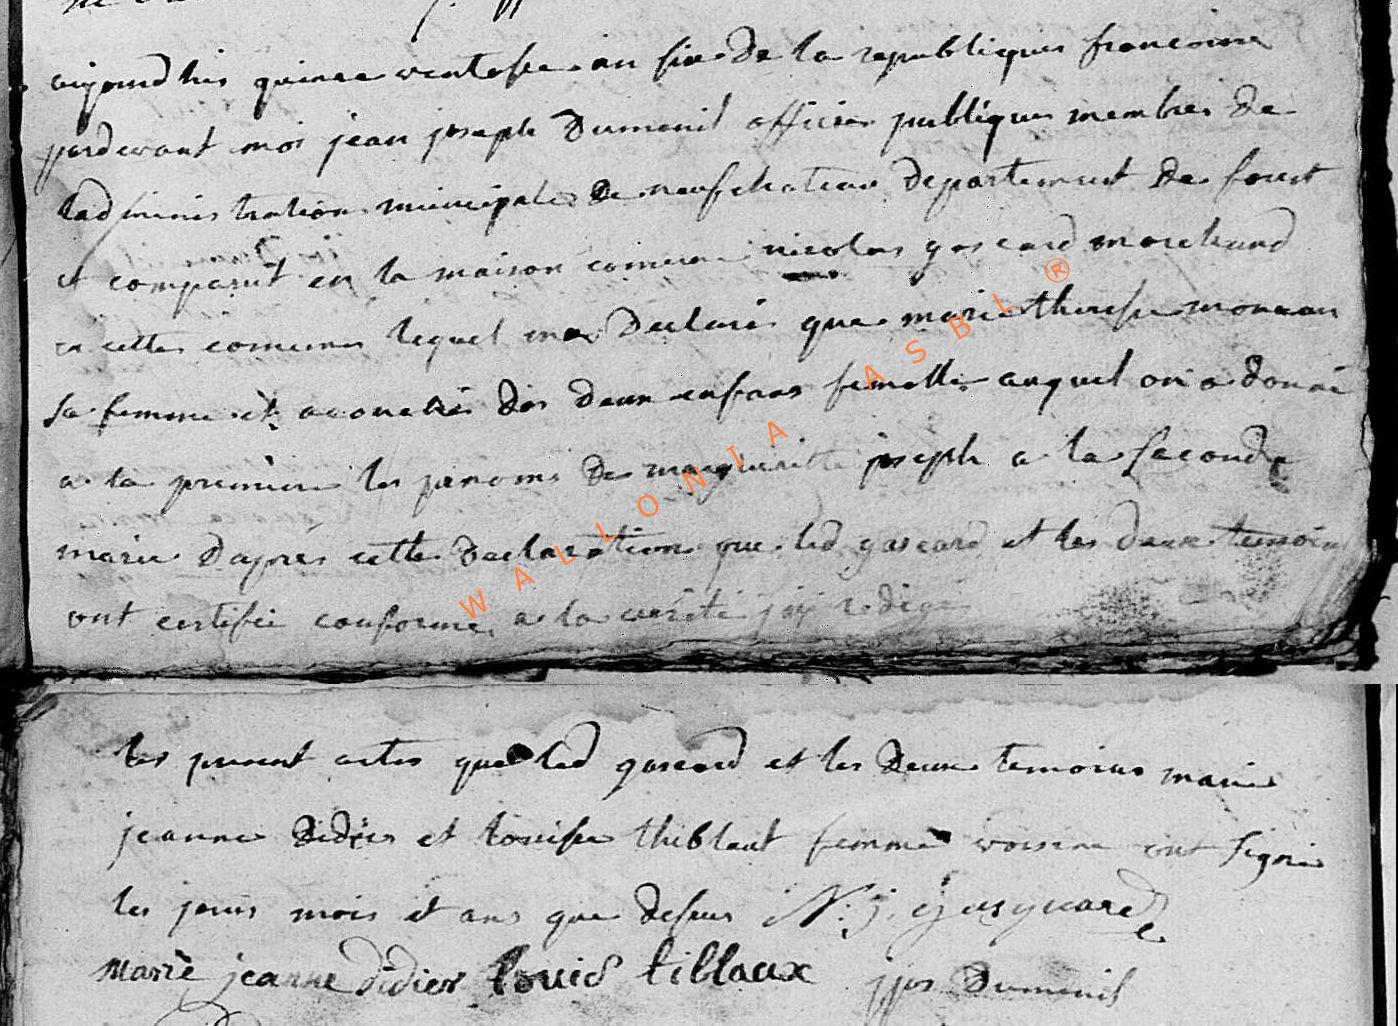 aujourdhui quinze ventose an six de la republiques francoise
pardevant moi jean joseph Dumenil officier publiques membres de
ladministration municipales de neufchateau departement de forest
et comparut en la maison comune nicolas gascard marchand
en cettes comunes lequel ma declarés que marie therese moreau
sa femme et acouchés des deux enfans femelles auquel on a donné
a la premiere les prenoms de margueritte joseph a la seconde
marie dapres cette declaration que led gascard et les deux temoins
ont certifié conforme a la verité jai redige
les present actes que led gascard et les deux temoins marie
jeanne didier et louise thiblaut femme voisine ont signé
les jours mois et ans que desus N: j: gasquard
marie jeanne didier louis tiblaux jjos Dumenil
WALLONIA ASBL ®